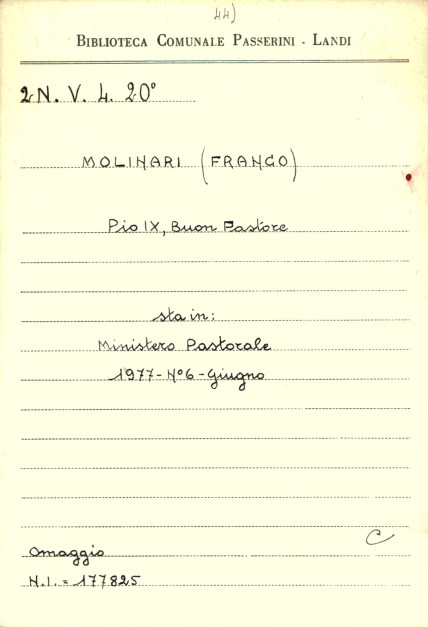 44)
BIBLIOTECA COMUNALE PASSERINI - LANDI
2N. V. 4. 20°
MOLINARI (FRANCO)
Pio IX, Buon Pastore
sta in:
Ministero Pastorale
1977 - N°6 - Giugno
C
Omaggio
N.I. = 177825